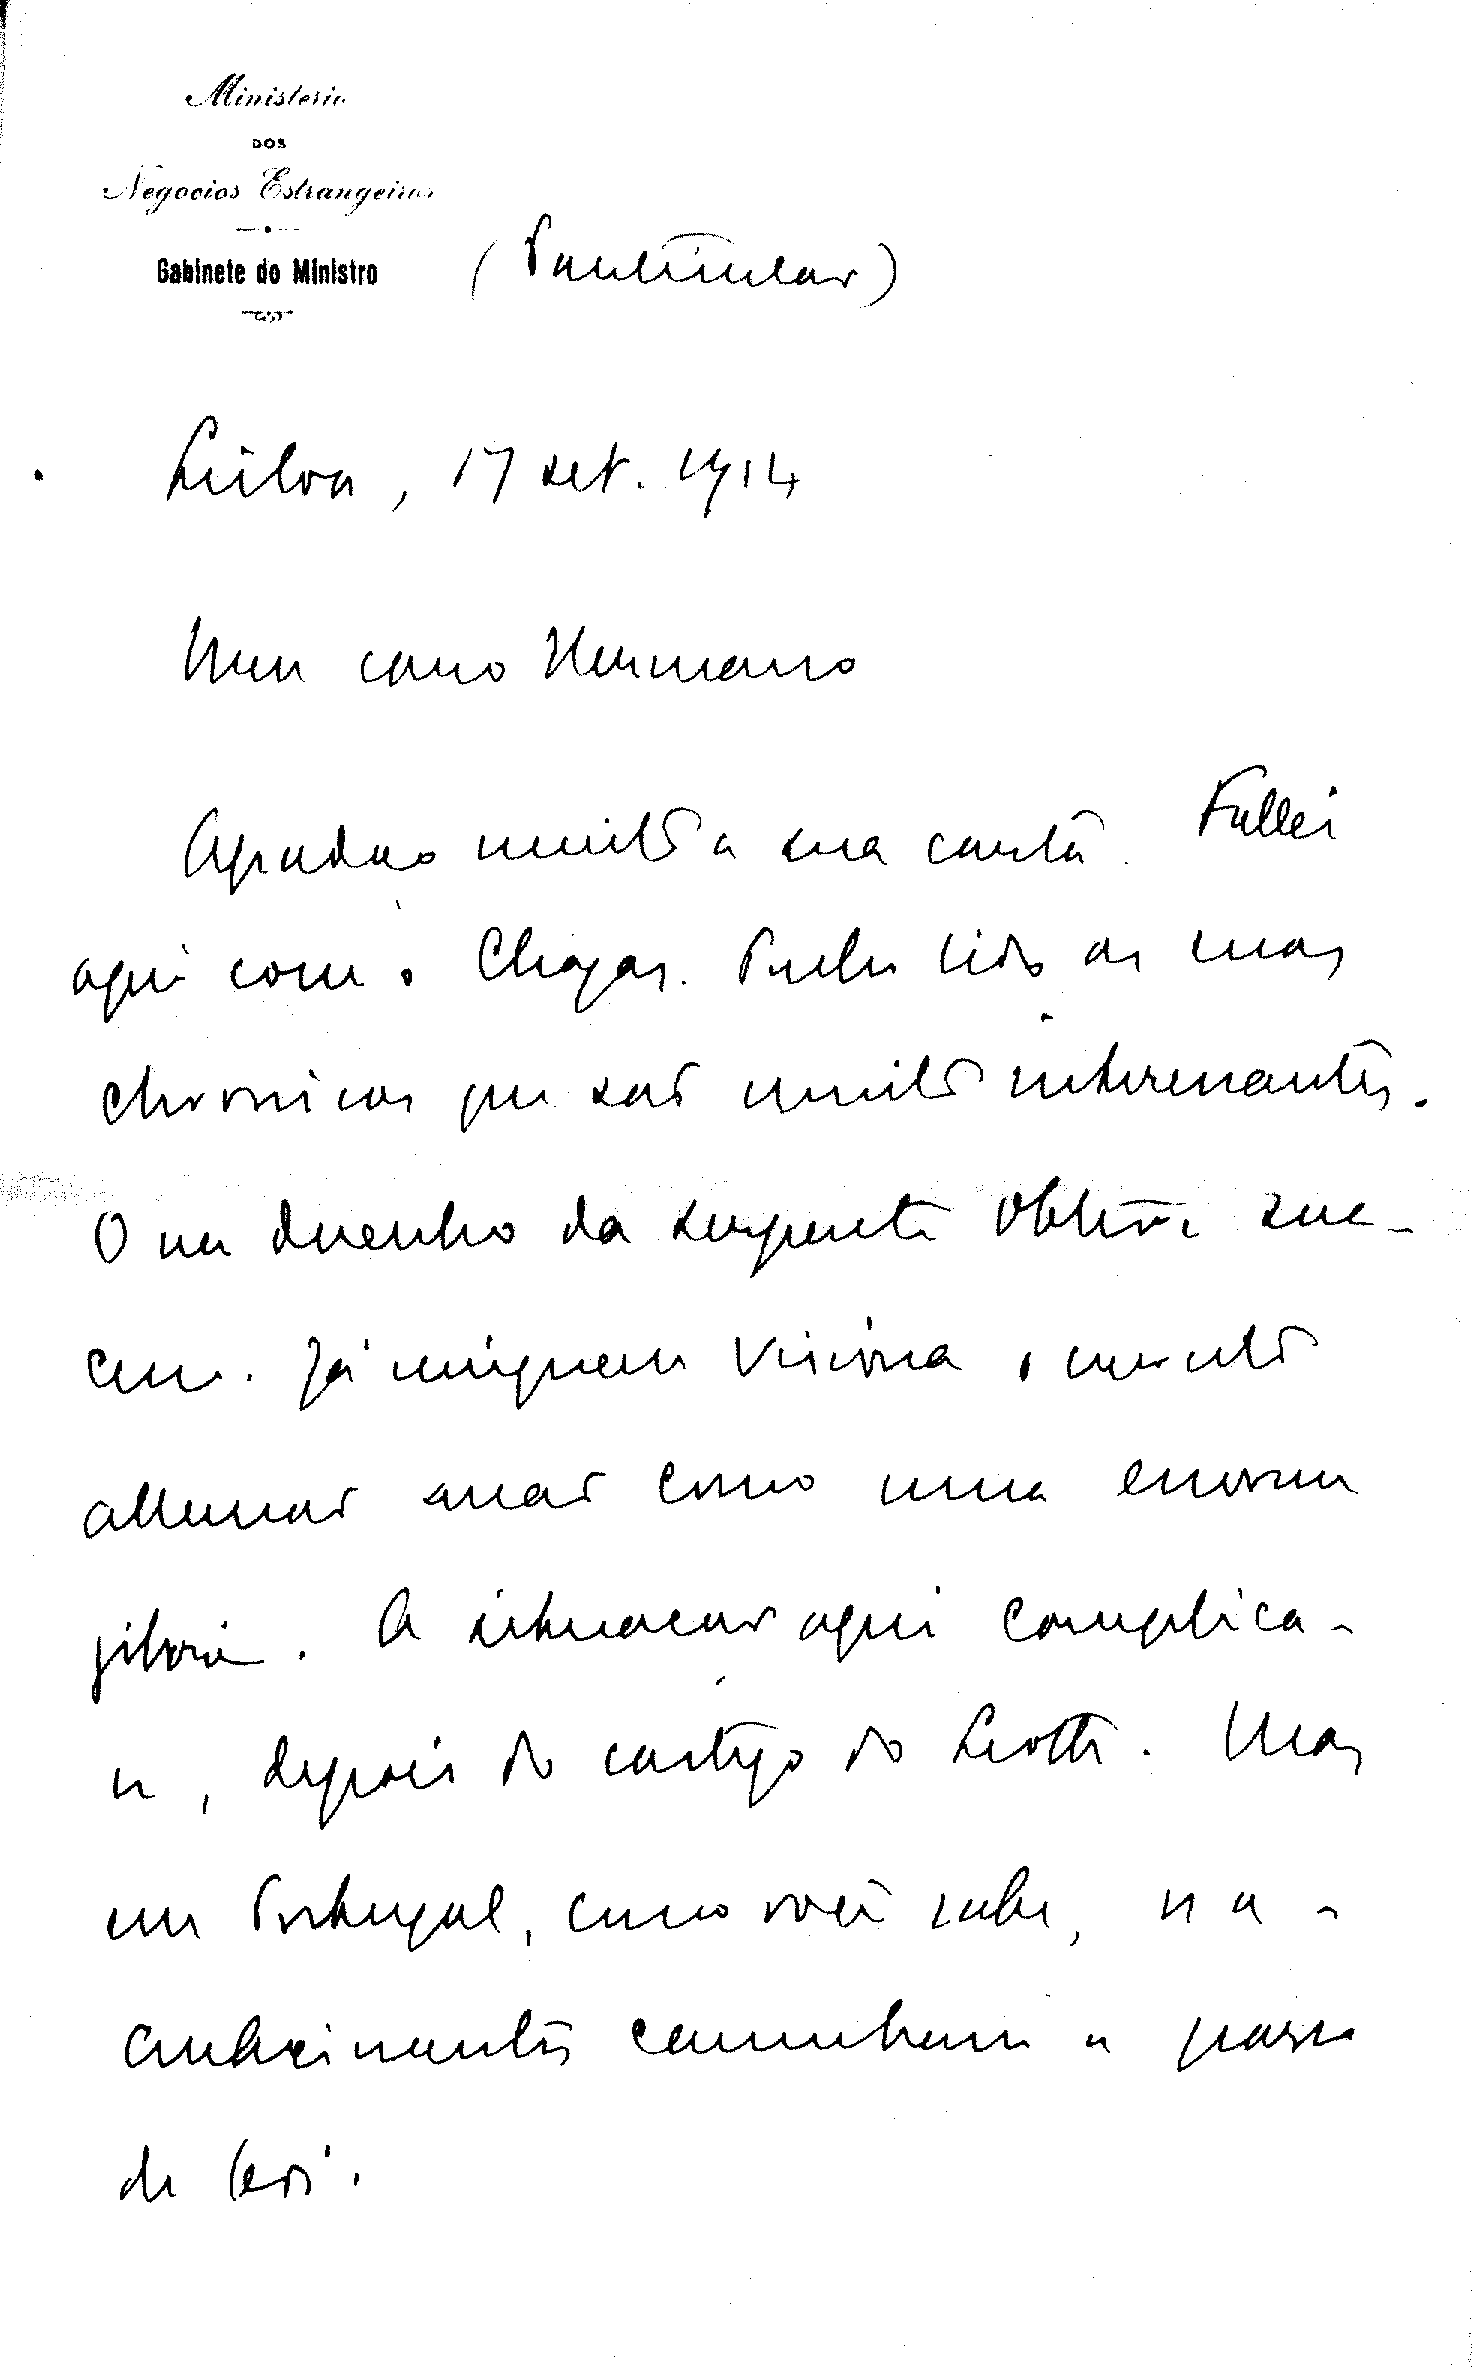 Ministerio
DOS
Negocios Estrangeiros
Gabinete do Ministro
(Particular)
Lisboa, 17 set. 1914
Meu caro Hermano
Agradeço muito a sua carta. Fallei
aqui com o Chagas. Tenho lido as suas
chronicas que são muito interessantes.
O seu desenho da serpente obteve suc-
cesso. Já ninguem visiona o mundo
allemão senão como uma enorme
giboia. A situação aqui complica-
se, depois do castigo do Leotte. Mas
em Portugal, como você sabe, os a-
contecimentos caminham a passo
de boi.